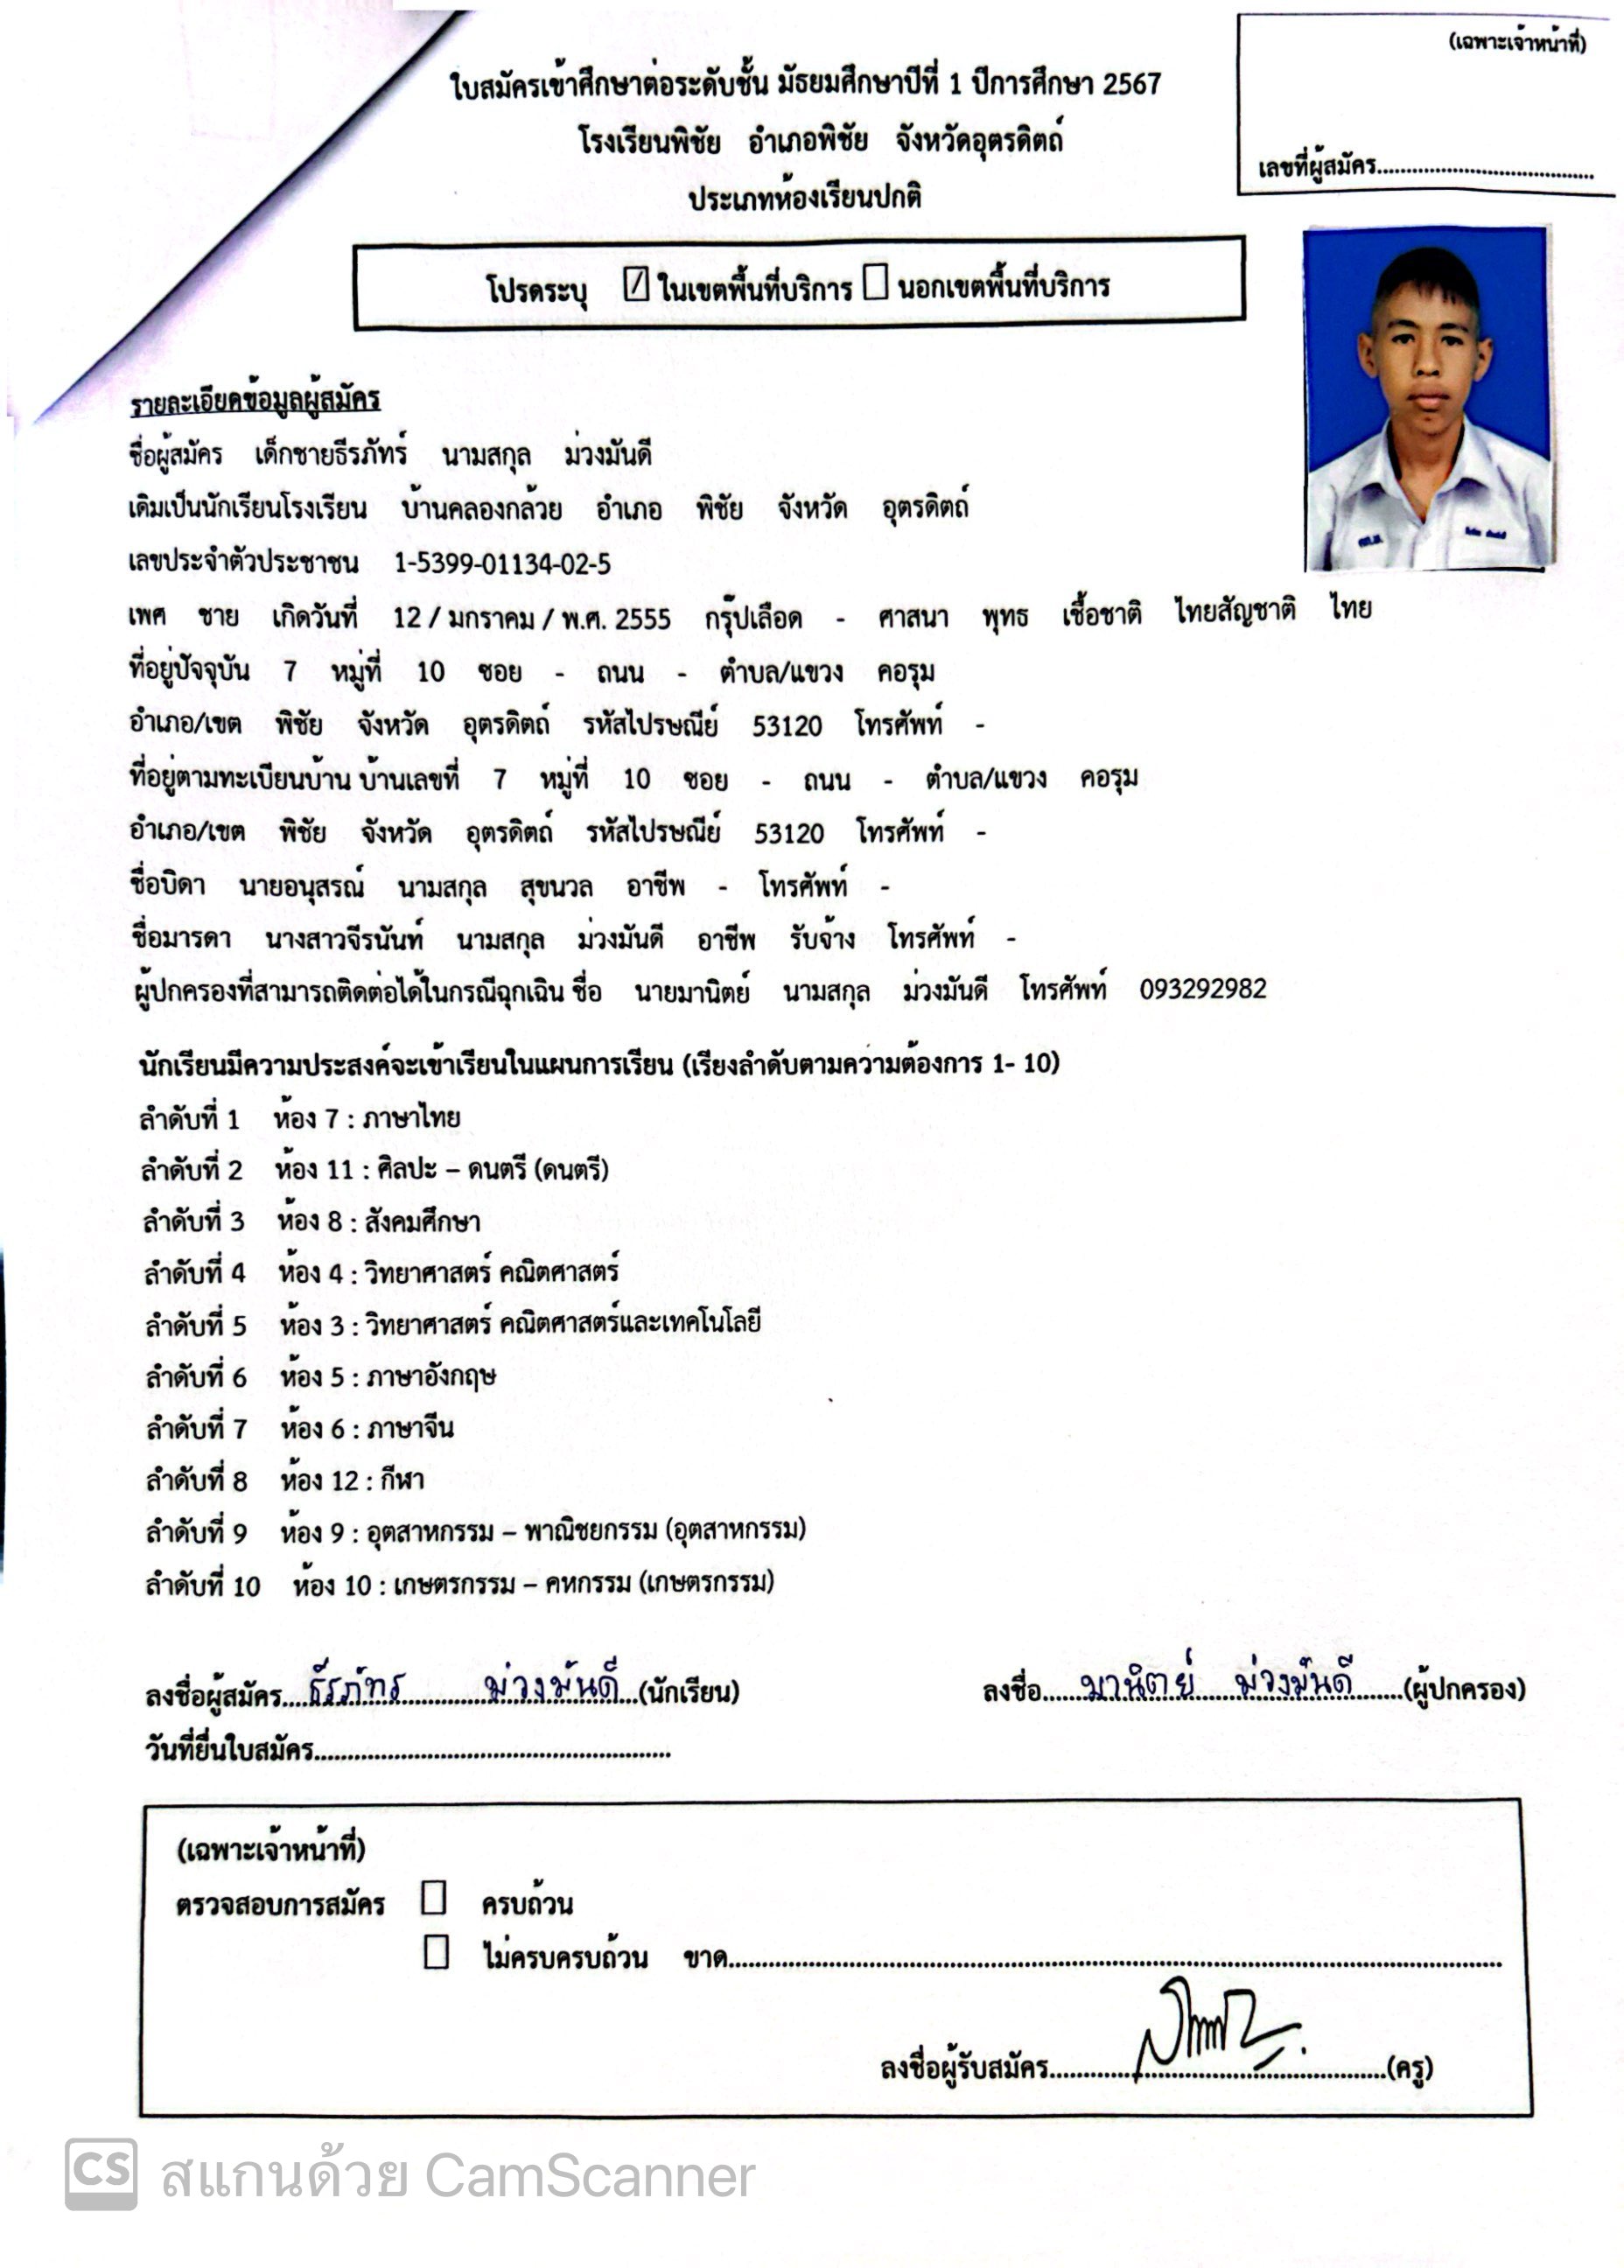 (เฉพาะเจ้าหน้าที่)
เลขที่ผู้สมัคร....................................
ใบสมัครเข้าศึกษาต่อระดับชั้น มัธยมศึกษาปีที่ 1 ปีการศึกษา 2567
โรงเรียนพิชัย อำเภอพิชัย จังหวัดอุตรดิตถ์
ประเภทห้องเรียนปกติ
โปรดระบุ ☑ ในเขตพื้นที่บริการ ☐ นอกเขตพื้นที่บริการ
รายละเอียดข้อมูลผู้สมัคร
ชื่อผู้สมัคร เด็กชายธีรภัทร์ นามสกุล ม่วงมันดี
เดิมเป็นนักเรียนโรงเรียน บ้านคลองกล้วย อำเภอ พิชัย จังหวัด อุตรดิตถ์
เลขประจำตัวประชาชน 1-5399-01134-02-5
เพศ ชาย เกิดวันที่ 12 / มกราคม / พ.ศ. 2555 กรุ๊ปเลือด - ศาสนา พุทธ เชื้อชาติ ไทยสัญชาติ ไทย
ที่อยู่ปัจจุบัน 7 หมู่ที่ 10 ซอย - ถนน - ตำบล/แขวง คอรุม
อำเภอ/เขต พิชัย จังหวัด อุตรดิตถ์ รหัสไปรษณีย์ 53120 โทรศัพท์ -
ที่อยู่ตามทะเบียนบ้าน บ้านเลขที่ 7 หมู่ที่ 10 ซอย - ถนน - ตำบล/แขวง คอรุม
อำเภอ/เขต พิชัย จังหวัด อุตรดิตถ์ รหัสไปรษณีย์ 53120 โทรศัพท์ -
ชื่อบิดา นายอนุสรณ์ นามสกุล สุขนวล อาชีพ - โทรศัพท์ -
ชื่อมารดา นางสาวจีรนันท์ นามสกุล ม่วงมันดี อาชีพ รับจ้าง โทรศัพท์ -
ผู้ปกครองที่สามารถติดต่อได้ในกรณีฉุกเฉิน ชื่อ นายมานิตย์ นามสกุล ม่วงมันดี โทรศัพท์ 093292982
นักเรียนมีความประสงค์จะเข้าเรียนในแผนการเรียน (เรียงลำดับตามความต้องการ 1- 10)
ลำดับที่ 1 ห้อง 7 : ภาษาไทย
ลำดับที่ 2 ห้อง 11 : ศิลปะ – ดนตรี (ดนตรี)
ลำดับที่ 3 ห้อง 8 : สังคมศึกษา
ลำดับที่ 4 ห้อง 4 : วิทยาศาสตร์ คณิตศาสตร์
ลำดับที่ 5 ห้อง 3 : วิทยาศาสตร์ คณิตศาสตร์และเทคโนโลยี
ลำดับที่ 6 ห้อง 5 : ภาษาอังกฤษ
ลำดับที่ 7 ห้อง 6 : ภาษาจีน
ลำดับที่ 8 ห้อง 12 : กีฬา
ลำดับที่ 9 ห้อง 9 : อุตสาหกรรม – พาณิชยกรรม (อุตสาหกรรม)
ลำดับที่ 10 ห้อง 10 : เกษตรกรรม – คหกรรม (เกษตรกรรม)
ลงชื่อผู้สมัคร....ธีรภัทร ม่วงมันดี...(นักเรียน) ลงชื่อ......มานิตย์ ม่วงมันดี......(ผู้ปกครอง)
วันที่ยื่นใบสมัคร............................................................
(เฉพาะเจ้าหน้าที่)
ตรวจสอบการสมัคร ☐ ครบถ้วน
☐ ไม่ครบครบถ้วน ขาด....................................................................................
ลงชื่อผู้รับสมัคร..................................................(ครู)
CS สแกนด้วย CamScanner